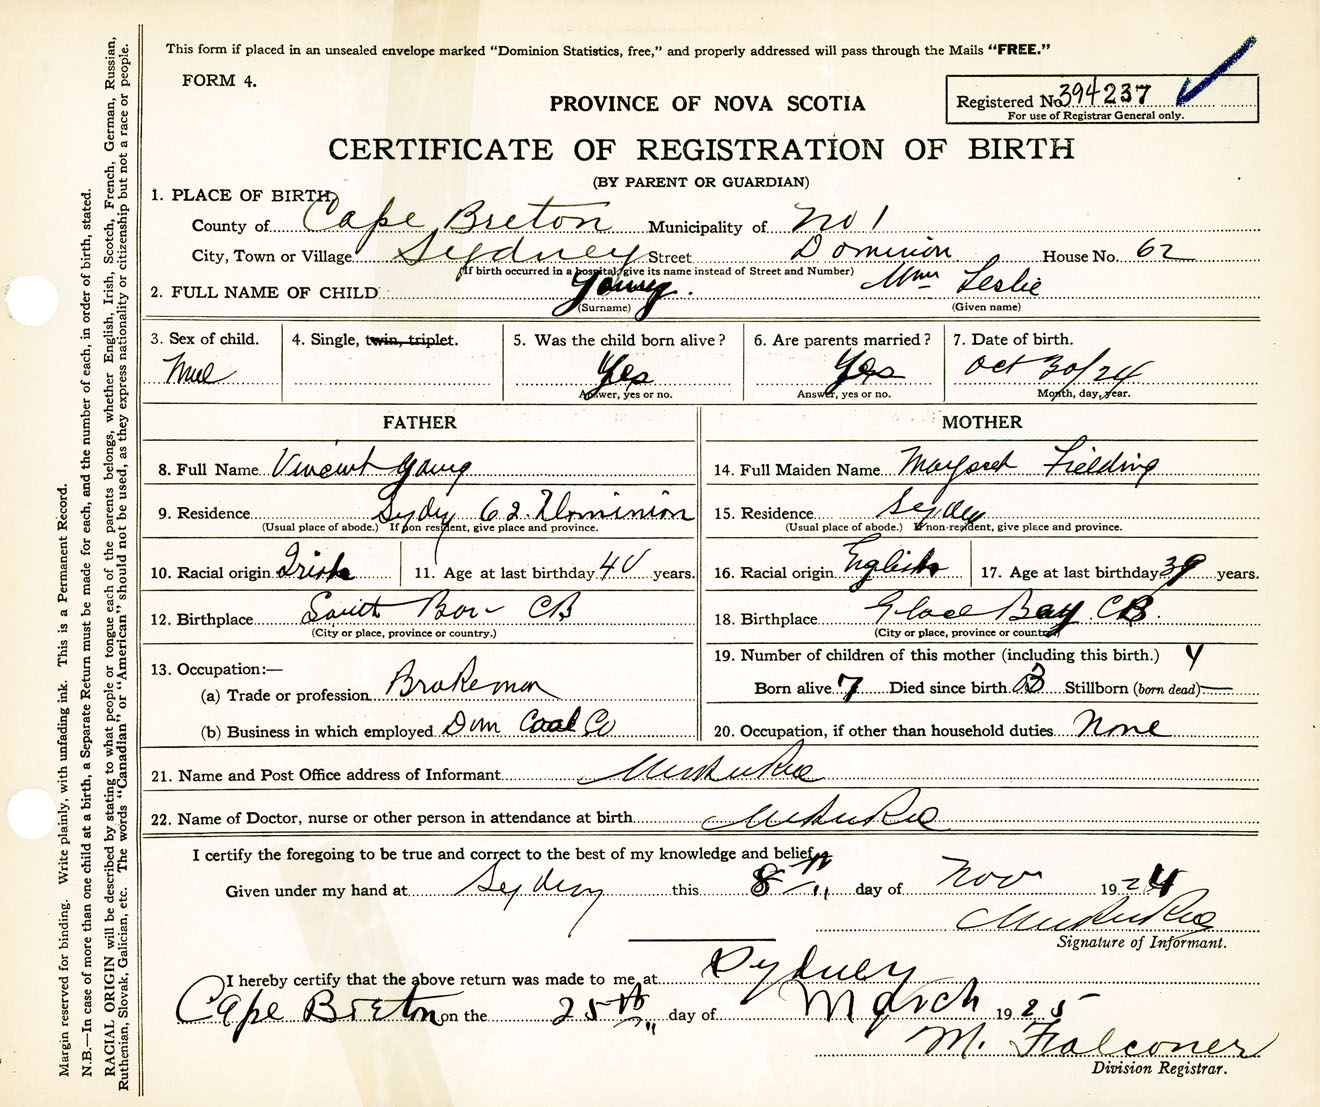 This form if placed in an unsealed envelope marked "Dominion Statistics, free," and properly addressed will pass through the Mails "FREE."
FORM 4.
Registered No. 394237
For use of Registrar General only.
PROVINCE OF NOVA SCOTIA
CERTIFICATE OF REGISTRATION OF BIRTH
(BY PARENT OR GUARDIAN)
1. PLACE OF BIRTH,
County of Cape Breton Municipality of No 1
City, Town or Village Sydney Street Dominion House No. 62
(If birth occurred in a hospital, give its name instead of Street and Number)
2. FULL NAME OF CHILD Young. Wm Leslie
(Surname) (Given name)
3. Sex of child. 4. Single, twin, triplet. 5. Was the child born alive? 6. Are parents married? 7. Date of birth.
Yes Yes Oct 30/24
Answer, yes or no. Answer, yes or no. Month, day, year.
FATHER MOTHER
8. Full Name Vincent Young 14. Full Maiden Name Margaret Fielding
9. Residence Sydney 62 Dominion 15. Residence Sydney
(Usual place of abode.) If non resident, give place and province. (Usual place of abode.) If non-resident, give place and province.
10. Racial origin Irish 11. Age at last birthday 40 years. 16. Racial origin English 17. Age at last birthday 39 years.
12. Birthplace South Bar CB 18. Birthplace Glace Bay CB.
(City or place, province or country.) (City or place, province or country)
13. Occupation:— 19. Number of children of this mother (including this birth.) 4
(a) Trade or profession Brakeman Born alive 7 Died since birth 3 Stillborn (born dead) —
(b) Business in which employed Dom Coal Co 20. Occupation, if other than household duties None
21. Name and Post Office address of Informant
22. Name of Doctor, nurse or other person in attendance at birth
I certify the foregoing to be true and correct to the best of my knowledge and belief,
Given under my hand at Sydney this 8th day of Nov 1924
Signature of Informant.
I hereby certify that the above return was made to me at Sydney
Cape Breton on the 25th day of March 1925
M. Falconer
Division Registrar.
Margin reserved for binding. Write plainly, with unfading ink. This is a Permanent Record.
N.B.—In case of more than one child at a birth, a Separate Return must be made for each, and the number of each, in order of birth, stated.
RACIAL ORIGIN will be described by stating to what people or tongue each of the parents belongs, whether English, Irish, Scotch, French, German, Russian,
Ruthenian, Slovak, Galician, etc. The words "Canadian" or "American" should not be used, as they express nationality or citizenship but not a race or people.